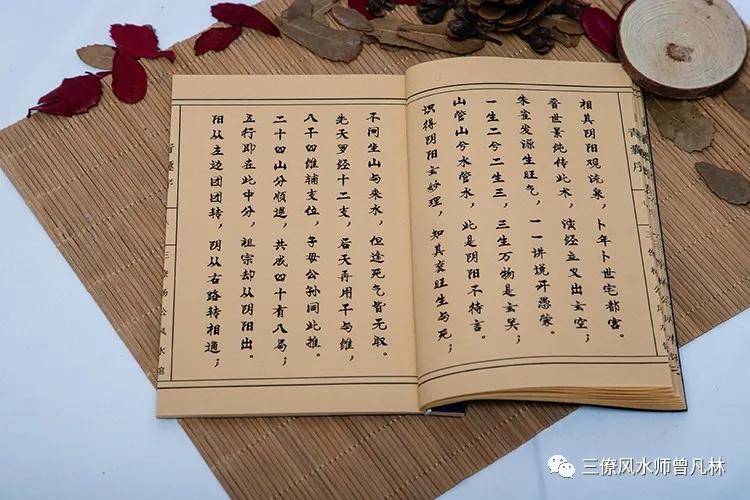 相其阴阳观流泉，卜年卜世宅都宫。
晋世景纯传此术，演经立义出玄空；
朱雀发源生旺气，一一讲说开愚蒙。
一生二兮二生三，三生万物是玄关；
山管山兮水管水，此是阴阳不待言。
识得阴阳玄妙理，知其衰旺生与死；
不问坐山与来水，但逢死气皆无取。
先天罗经十二支，后天再用干与维，
八干四维辅支位，子母公孙同此推。
二十四山分顺逆，共成四十有八局；
五行即在此中分，祖宗却从阴阳出。
阳从左边团团转，阴从右路转相通；
青囊序
三僚杨公风水馆
三僚风水师曾凡林